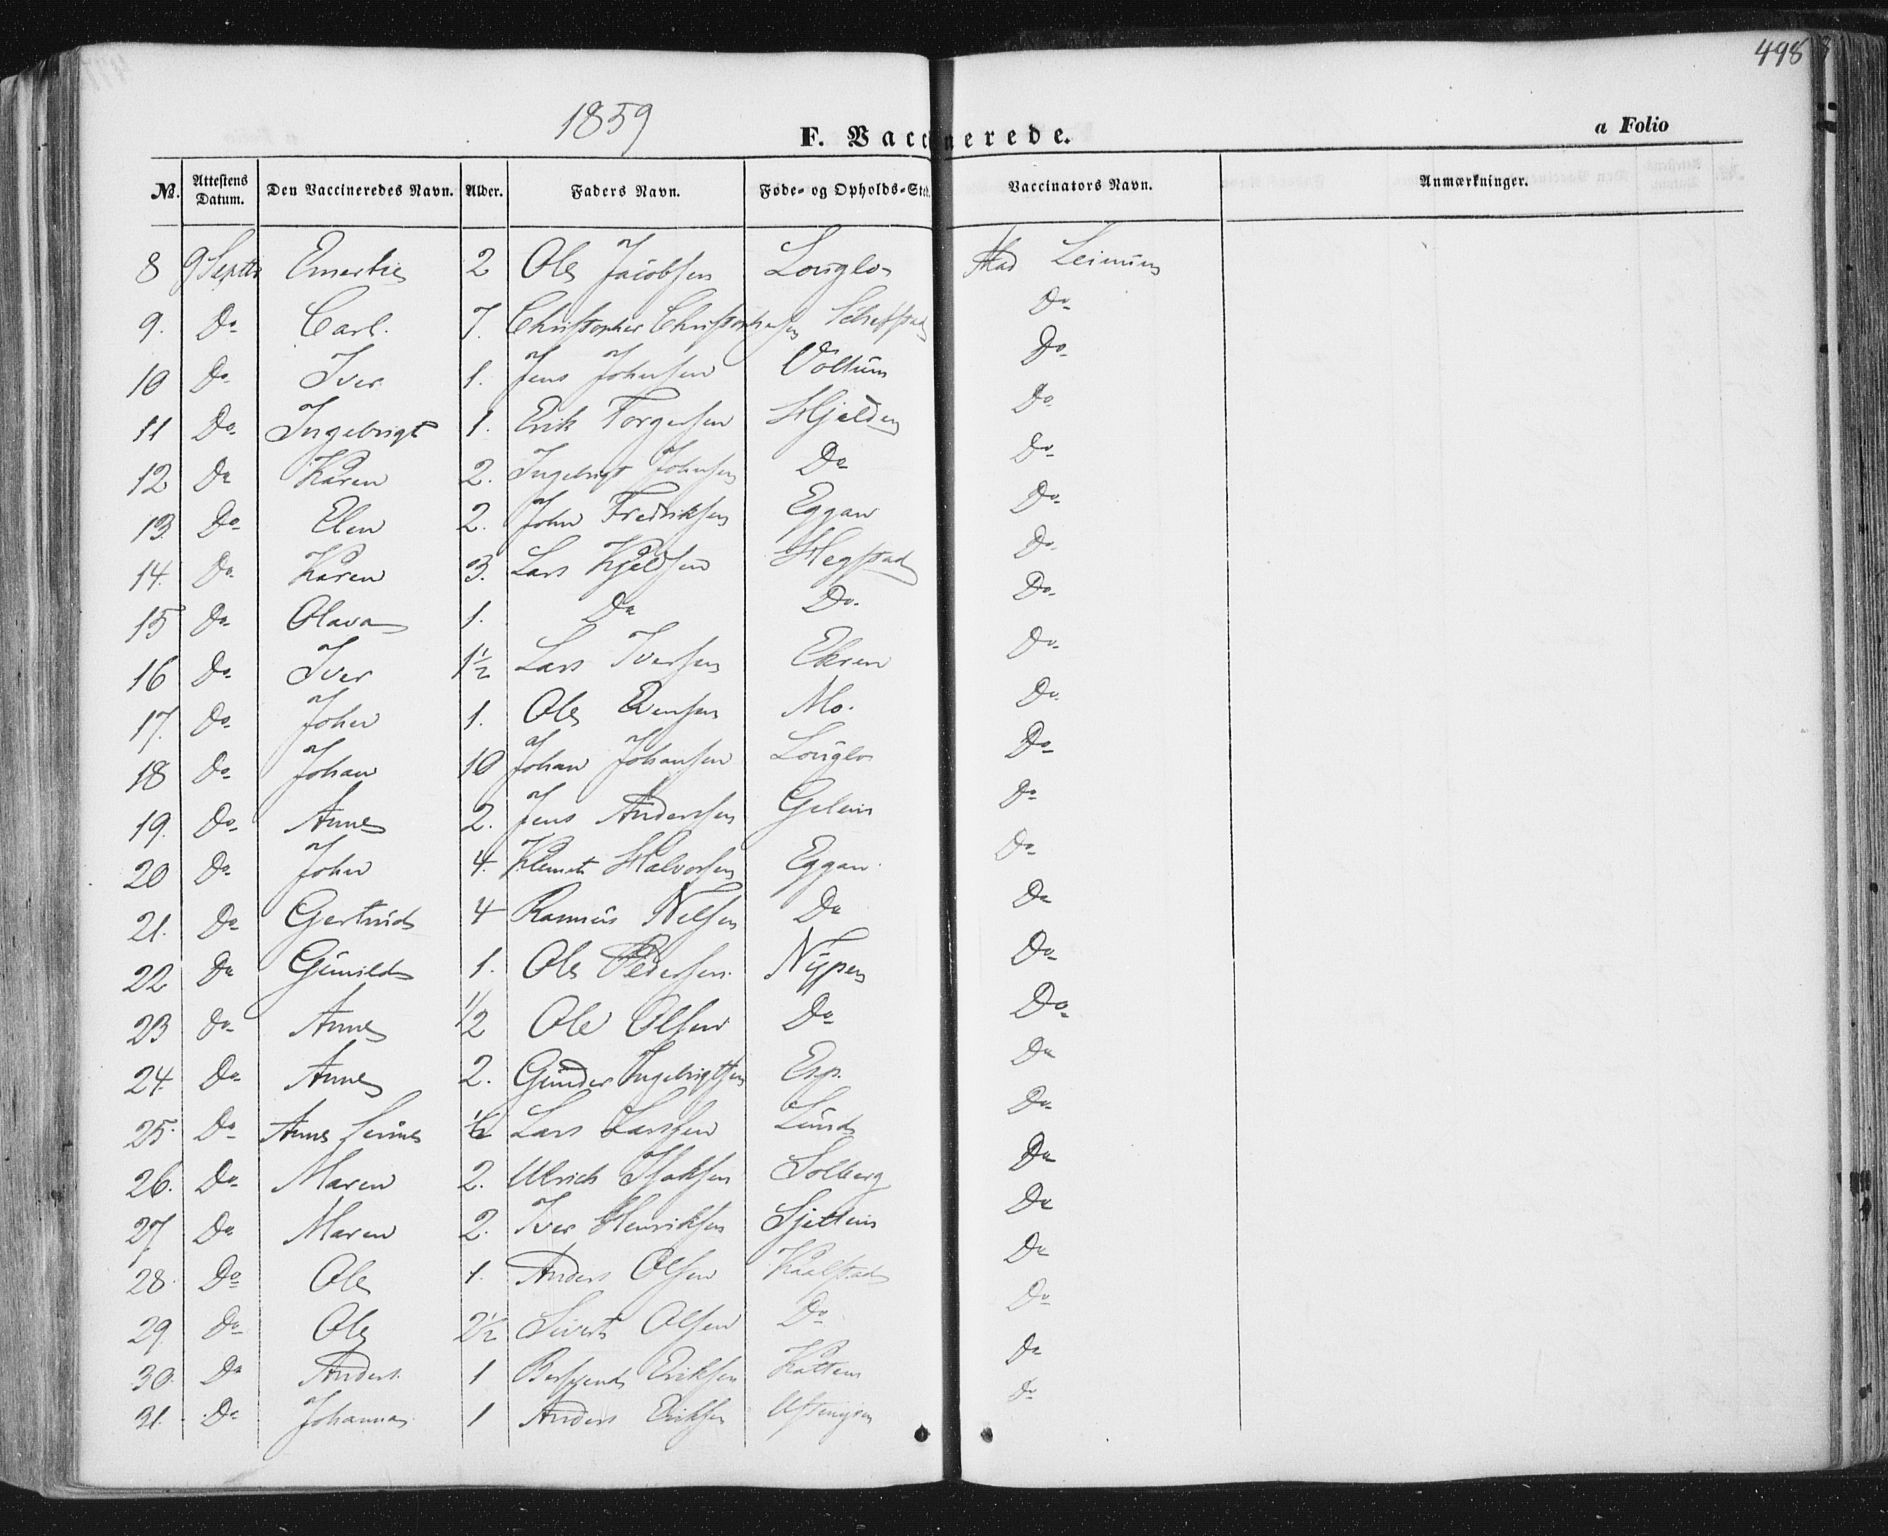 498
1859
F. Vaccinerede.
a Folio
№. Attestens Datum. Den Vaccineredes Navn. Alder. Faders Navn. Føde- og Opholds-Sted. Vaccinators Navn. Anmærkninger.
8 9 Septbr 2 Ole Jacobsen Louglo Leinum
9. Do Carl. 7. Christopher Christophersen Do
10 Do Iver 1. Jens Johnsen Voltum Do
11 Do Ingebrigt 1. Erik Torgersen Hjelden Do
12 Do Karen 2. Ingebrigt Johnsen Do Do
13. Do Elen 2. John Fredriksen Eggan Do
14. Do Karen 3. Lars Kjeldsen Hegstad Do
15 Do Olava 1. Do Do Do
16 Do Iver 1½ Lars Iversen Ekren Do
17. Do John 1. Ole Evensen Mo. Do
18 Do Johan 10 Johan Johansen Louglo Do
19. Do Anne 2. Jens Anderssen Do
20 Do John 4. Klemet Halvorsen Eggan. Do
21. Do Gertrud 4 Rasmus Nilsen Do Do
22 Do Gunild 1. Ole Pedersen Nypen Do
23 Do Anne ½ Ole Olsen Do Do
24. Do Anne 2. Gunder Ingebrigtsen Esp. Do
25. Do Anne ½ Lars Larssen Lund Do
26. Do Maren 2. Ulrich Isaksen Solberg Do
27. Do Maren 2. Iver Henriksen Sjettem Do
28. Do Ole 1. Anders Olsen Kaalstad Do
29. Do Ole 2½ Sivert Olsen Do Do
30. Do Anders. 1 Eriksen Kattem Do
31. Do Johanna 1 Anders Eriksen Do